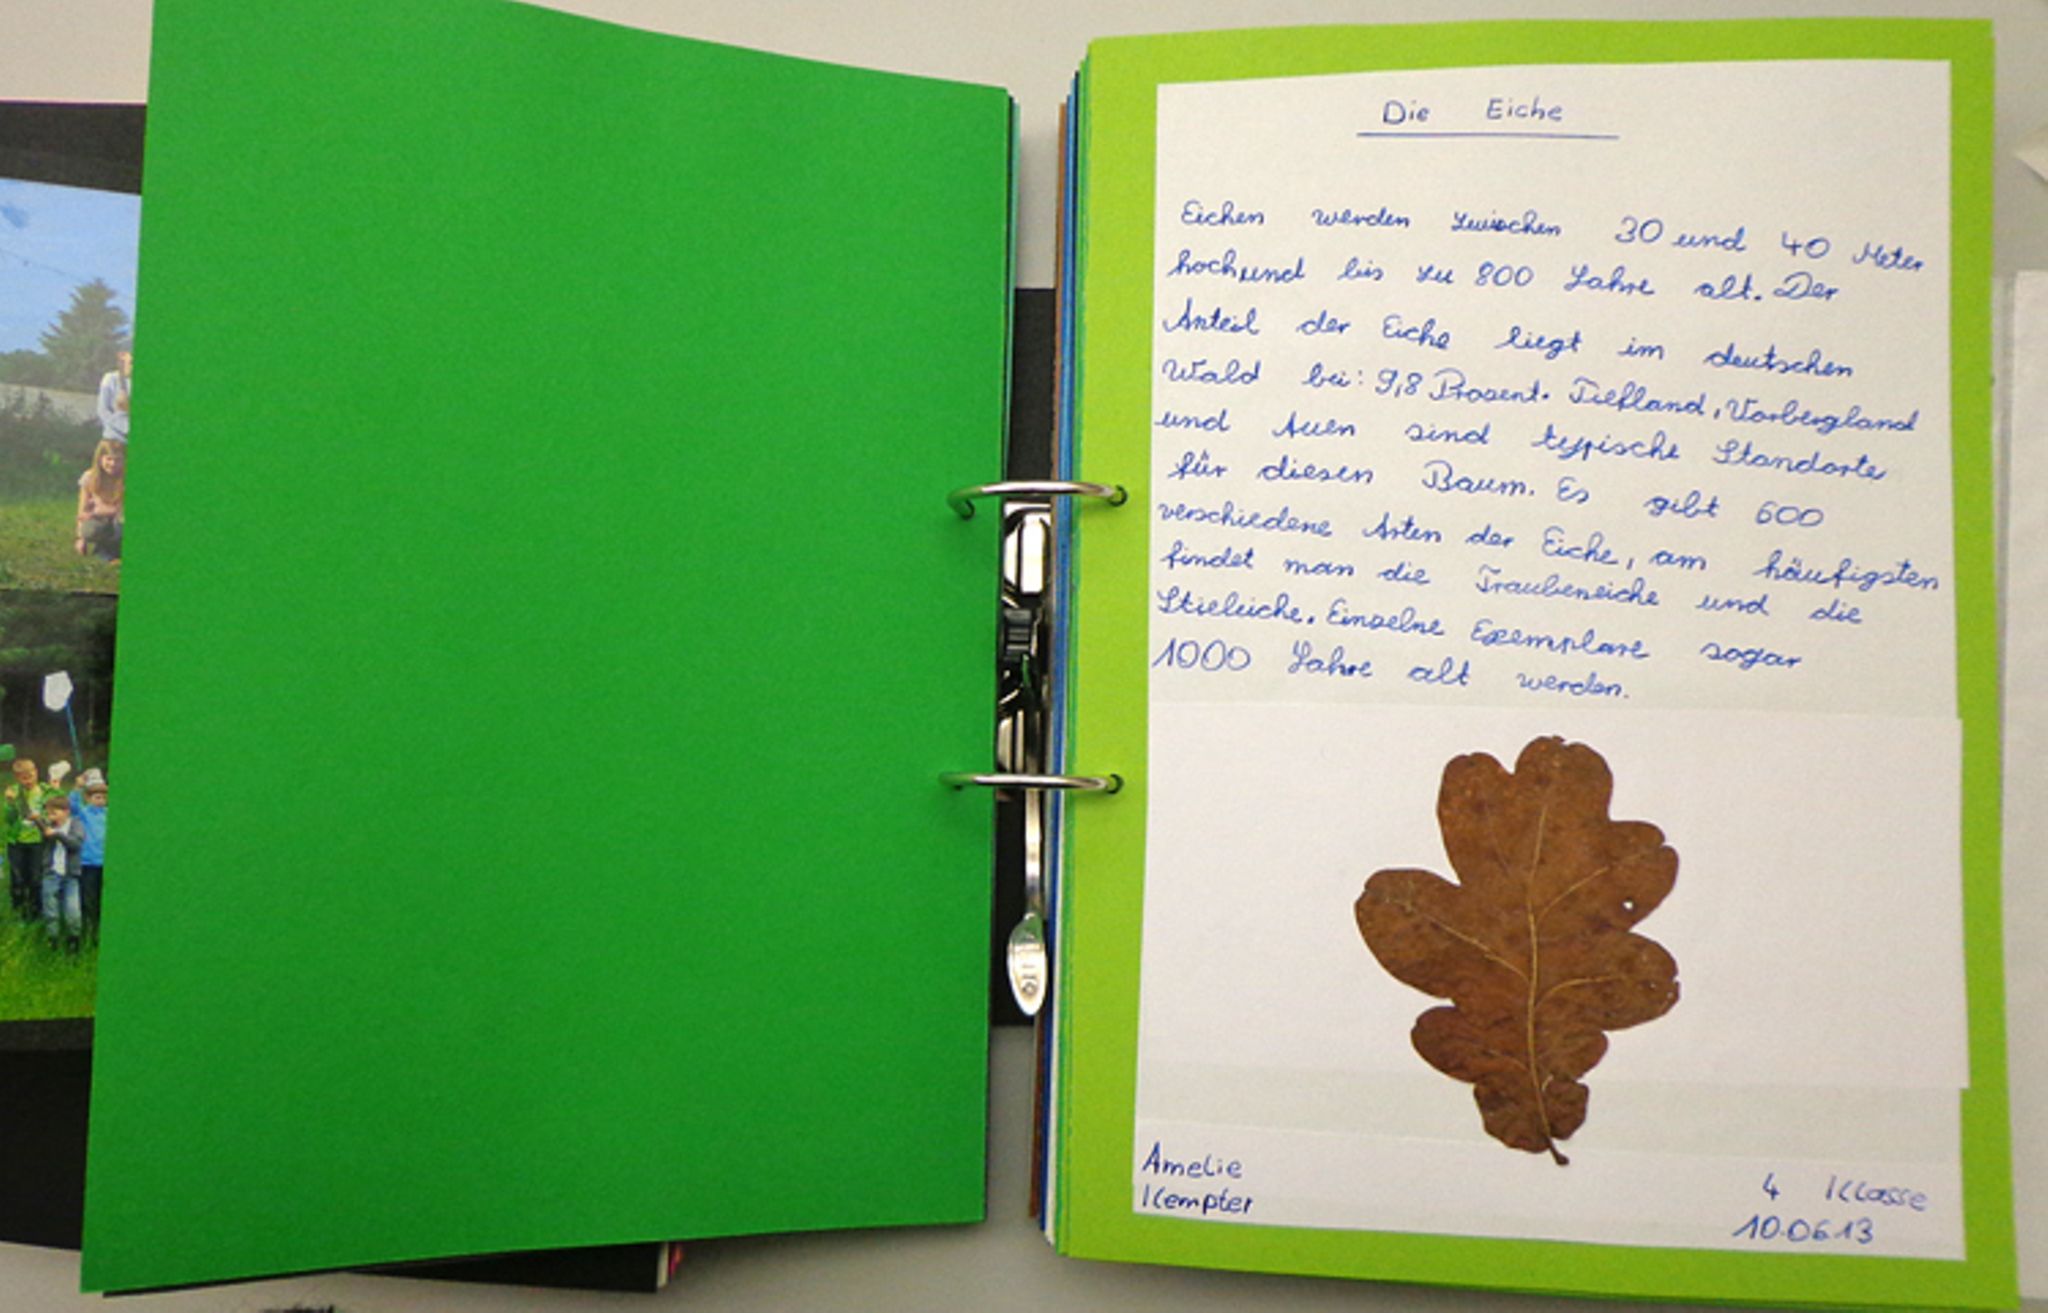 Die Eiche
Eichen werden zwischen 30 und 40 Meter
hoch und bis zu 800 Jahre alt. Der
Anteil der Eiche liegt im deutschen
Wald bei: 9,8 Prozent. Tiefland, Vorbergland
und Auen sind typische Standorte
für diesen Baum. Es gibt 600
verschiedene Arten der Eiche, am häufigsten
findet man die Traubeneiche und die
Stieleiche. Einzelne Exemplare sogar
1000 Jahre alt werden.
Amelie
Kempter
4 Klasse
10.06.13